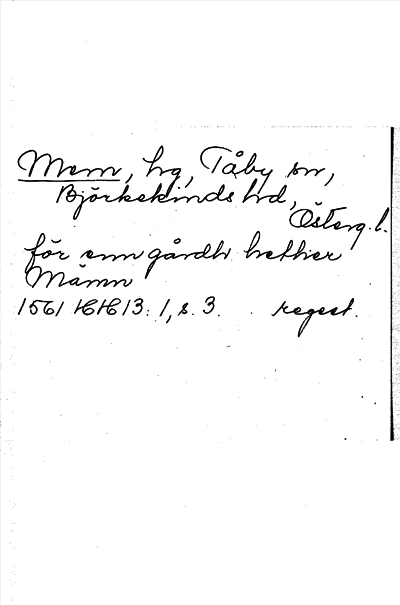 Mem, hg, Tåby sn,
Björkekinds hd,
Österg. l.
för enn gårdh hether
Mämn
1561 HH 13: 1, s. 3. regest.